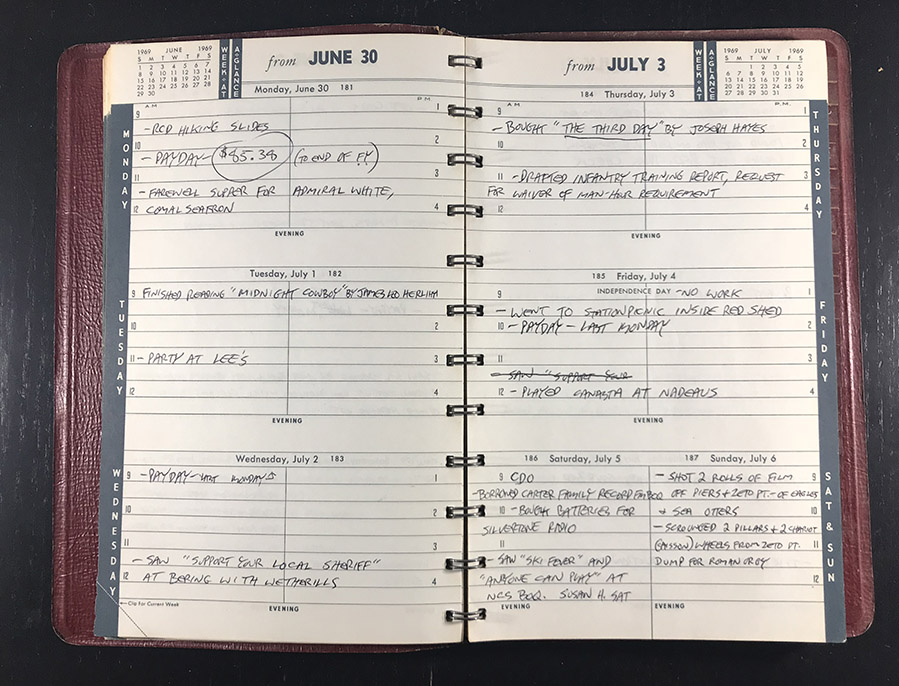 1969 JUNE 1969
S M T W T F S
1 2 3 4 5 6 7
8 9 10 11 12 13 14
15 16 17 18 19 20 21
22 23 24 25 26 27 28
29 30
WEEK-AT
A-GLANCE
from JUNE 30
Monday, June 30 181
MONDAY
A.M. P.M.
9 1
-RCD HIKING SLIDES
10 2
-PAYDAY- $85.38 (TO END OF FY)
11 3
-FAREWELL SUPPER FOR ADMIRAL WHITE,
12 COMALSEAFRON 4
EVENING
Tuesday, July 1 182
TUESDAY
9 FINISHED READING "MIDNIGHT COWBOY" BY JAMES LEO HERLIHY
10 2
11 -PARTY AT LEE'S 3
12 4
EVENING
Wednesday, July 2 183
WEDNESDAY
9 -PAYDAY-LAST MONDAY 1
10 2
11 3
-SAW "SUPPORT YOUR LOCAL SHERIFF"
12 AT BERING WITH WETHERILLS 4
Clip For Current Week
EVENING
from JULY 3
WEEK-AT
A-GLANCE
1969 JULY 1969
S M T W T F S
1 2 3 4 5
6 7 8 9 10 11 12
13 14 15 16 17 18 19
20 21 22 23 24 25 26
27 28 29 30 31
184 Thursday, July 3
THURSDAY
A.M. P.M.
9 1
-BOUGHT "THE THIRD DAY" BY JOSEPH HAYES
10 2
11 -DRAFTED INFANTRY TRAINING REPORT, REQUEST 3
FOR WAIVER OF MAN-HOUR REQUIREMENT
12 4
EVENING
185 Friday, July 4
FRIDAY
9 INDEPENDENCE DAY -NO WORK 1
-WENT TO STATION PICNIC INSIDE RED SHED
10 -PAYDAY-LAST MONDAY 2
11 3
-SAW "SUPPORT YOUR
12 -PLAYED CANASTA AT NADEAUS 4
EVENING
186 Saturday, July 5
9 CDO
-BORROWED CARTER FAMILY RECORD FM BOQ
10 -BOUGHT BATTERIES FOR
SILVERTONE RADIO
11
-SAW "SKI FEVER" AND
"ANYONE CAN PLAY" AT
NCS BOQ. SUSAN H. SAT
EVENING
187 Sunday, July 6
SAT & SUN
-SHOT 2 ROLLS OF FILM 9
OFF PIERS + ZETO PT.-OF EAGLES
+ SEA OTTERS 10
-SCROUNGED 2 PILLARS + 2 CHARIOT
(CAISSON) WHEELS FROM ZETO PT. 11
DUMP FOR ROMAN ORGY
12
EVENING